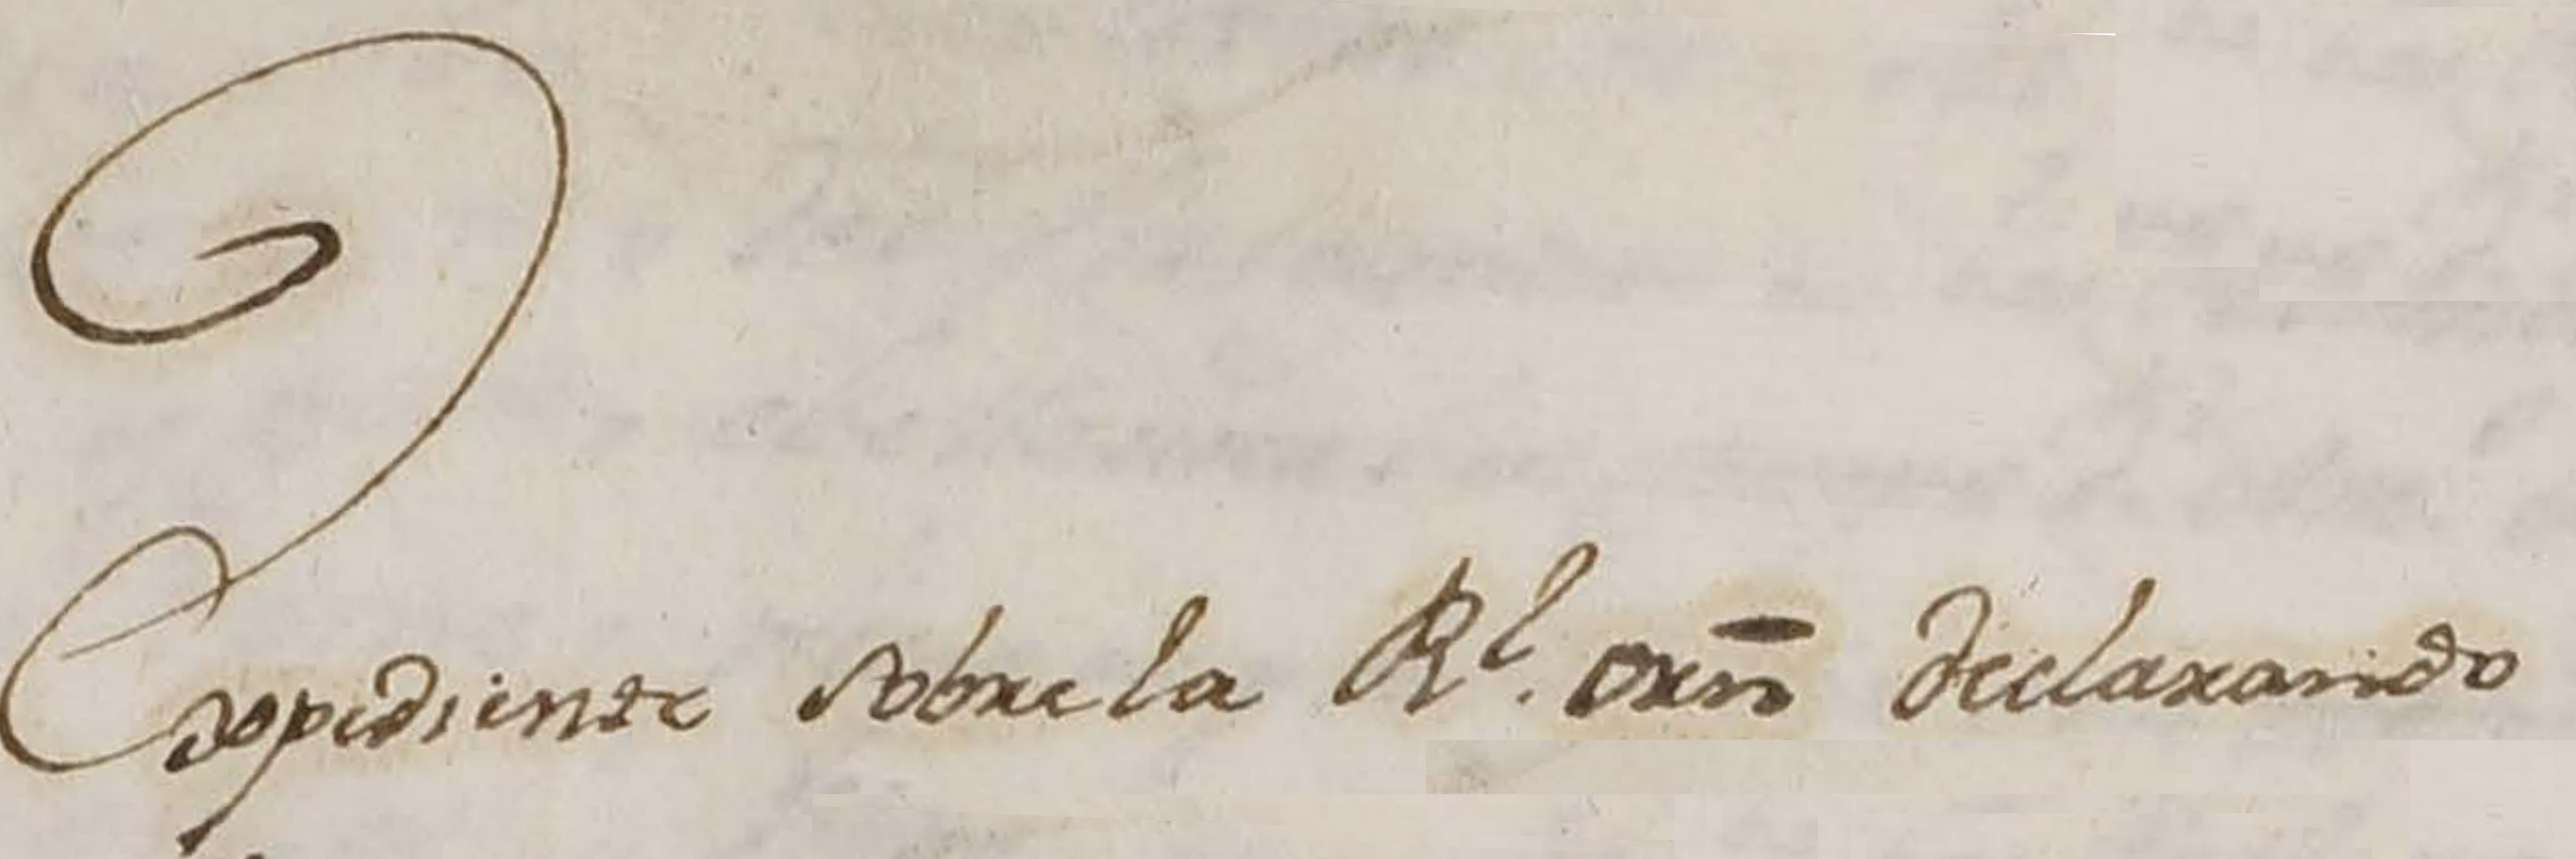 Expediente sobre la Rl. orn̄ declarando